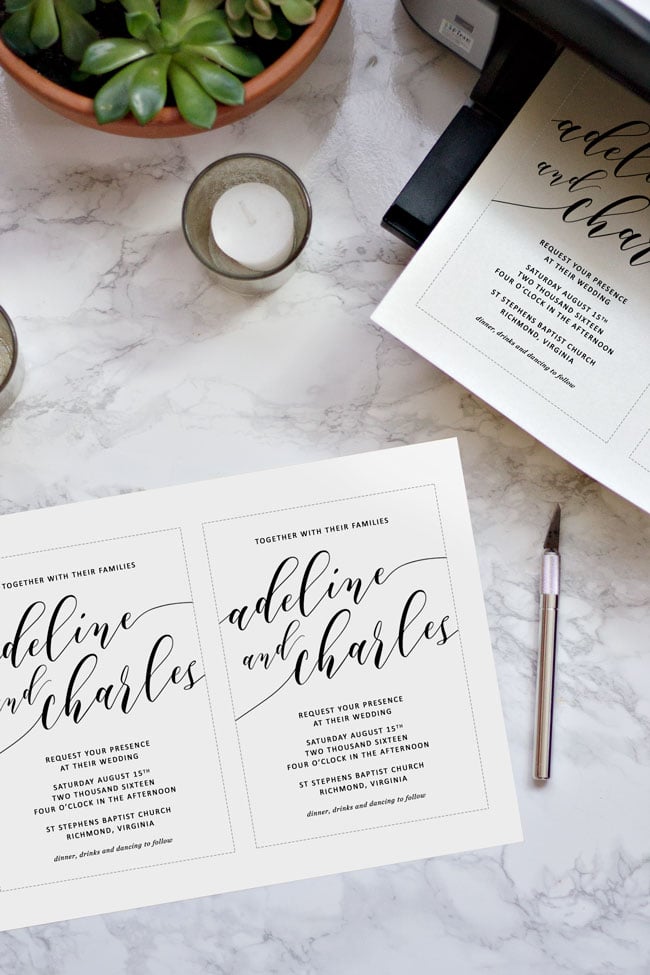 adeline
and
char
REQUEST YOUR PRESENCE
AT THEIR WEDDING
SATURDAY AUGUST 15TH
TWO THOUSAND SIXTEEN
FOUR O'CLOCK IN THE AFTERNOON
ST STEPHENS BAPTIST CHURCH
RICHMOND, VIRGINIA
dinner, drinks and dancing to follow
TOGETHER WITH THEIR FAMILIES
adeline
and charles
REQUEST YOUR PRESENCE
AT THEIR WEDDING
SATURDAY AUGUST 15TH
TWO THOUSAND SIXTEEN
FOUR O'CLOCK IN THE AFTERNOON
ST STEPHENS BAPTIST CHURCH
RICHMOND, VIRGINIA
dinner, drinks and dancing to follow
TOGETHER WITH THEIR FAMILIES
adeline
and charles
REQUEST YOUR PRESENCE
AT THEIR WEDDING
SATURDAY AUGUST 15TH
TWO THOUSAND SIXTEEN
FOUR O'CLOCK IN THE AFTERNOON
ST STEPHENS BAPTIST CHURCH
RICHMOND, VIRGINIA
dinner, drinks and dancing to follow